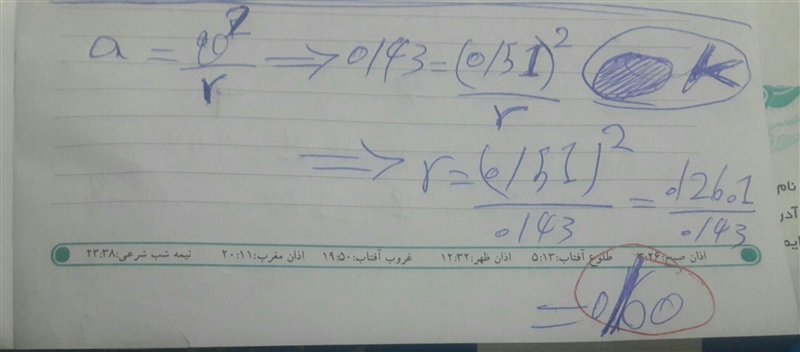 a = v²/r ⟹ 0/43 = (0/51)²/r K
⟹ r = (0/51)²/0/43 = 0/2601/0/43
نام
آدر
ایه
اذان صبح:۳:۲۶ طلوع آفتاب:۵:۱۳ اذان ظهر:۱۲:۳۲ غروب آفتاب:۱۹:۵۰ اذان مغرب:۲۰:۱۱ نیمه شب شرعی:۲۳:۳۸
= 0/60